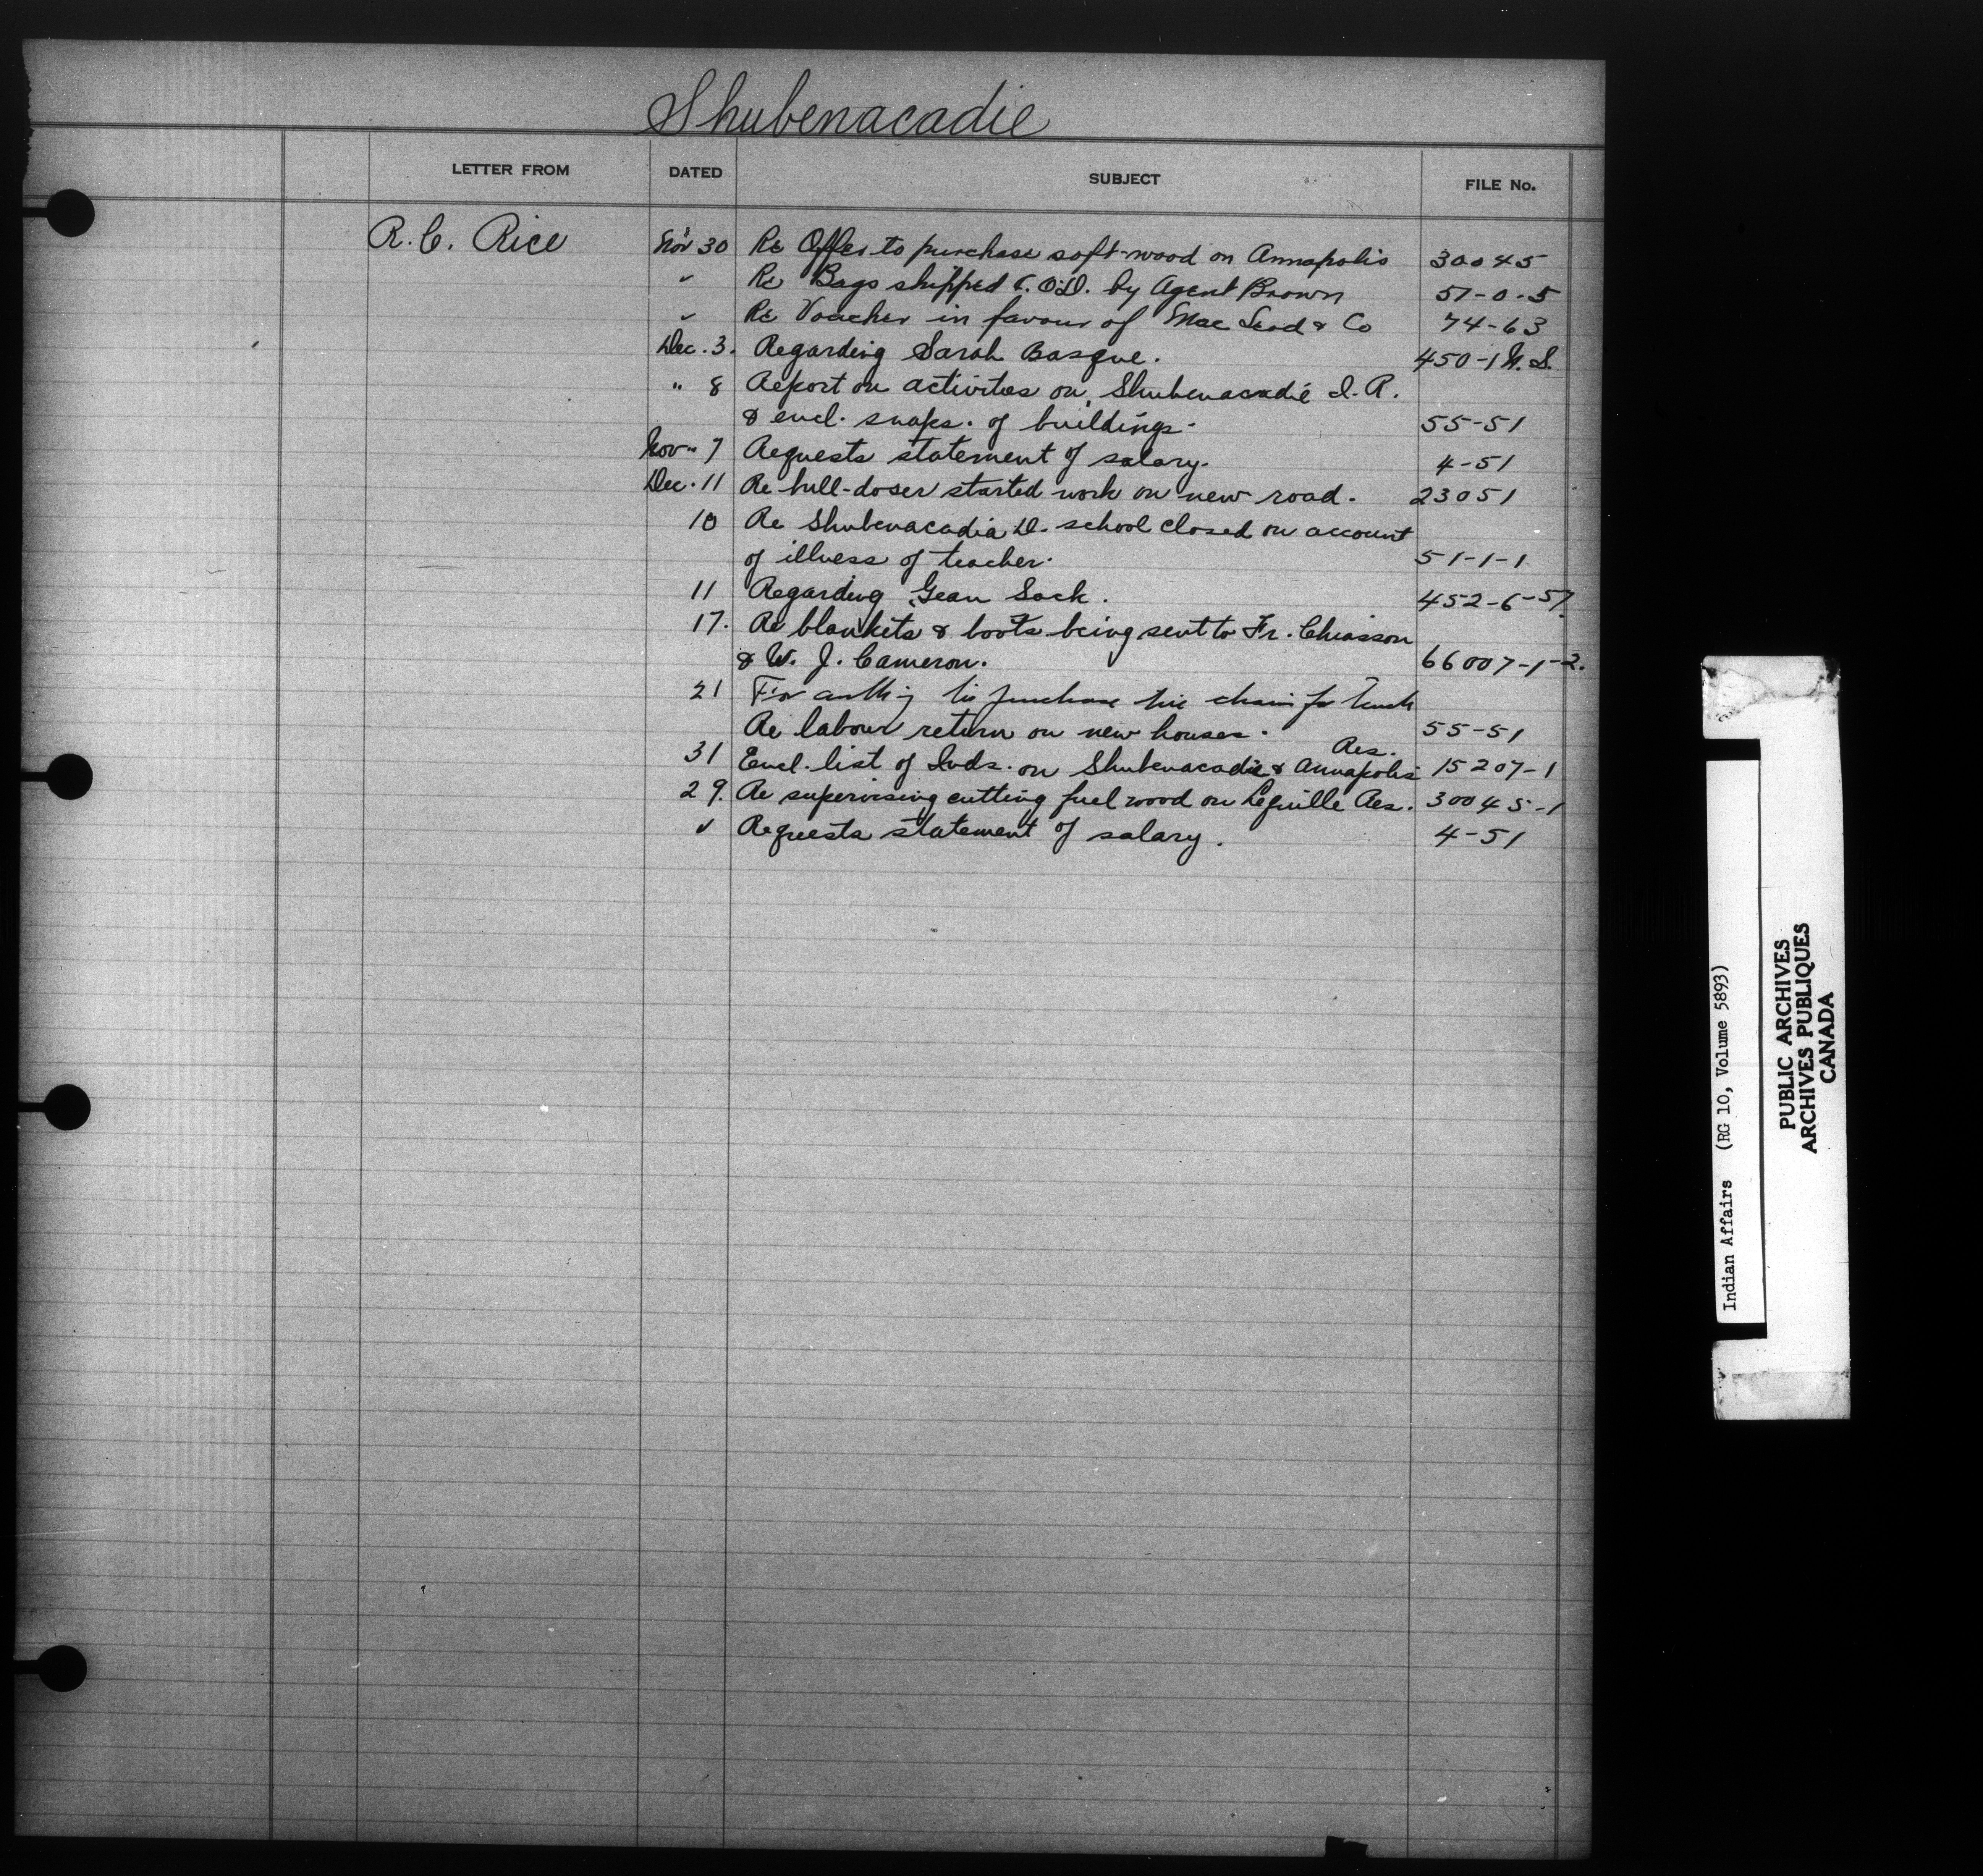 Shubenacadie
LETTER FROM DATED SUBJECT FILE No.
R. C. Rice Nov 30 Re Offer to purchase soft-wood on Annapolis 30045
" Re Bags shipped C.O.D. by Agent Brown 51-0-5
" Re Voucher in favour of Mac Leod & Co 74-63
Dec. 3. Regarding Sarah Basque. 450-1 N.S.
" 8 Report on activites on Shubenacadie I.R.
& encl. snaps. of buildings. 55-51
Nov. 7 Requests statement of salary. 4-51
Dec. 11 Re bull-doser started work on new road. 23051
10 Re Shubenacadia D. school closed on account
of illness of teacher. 51-1-1
11 Regarding Gean Sack. 452-6-51
17. Re blankets & boots being sent to Fr. Chiasson
& W. J. Cameron. 66007-1-2.
21 For purchase chain for truck
Re labour return on new houses. 55-51
31 Encl. list of Inds. on Shubenacadie & Annapolis Res. 15207-1
29. Re supervising cutting fuel wood on Lequille Res. 30045-1
" Requests statement of salary. 4-51
Indian Affairs (RG 10, Volume 5893)
PUBLIC ARCHIVES
ARCHIVES PUBLIQUES
CANADA